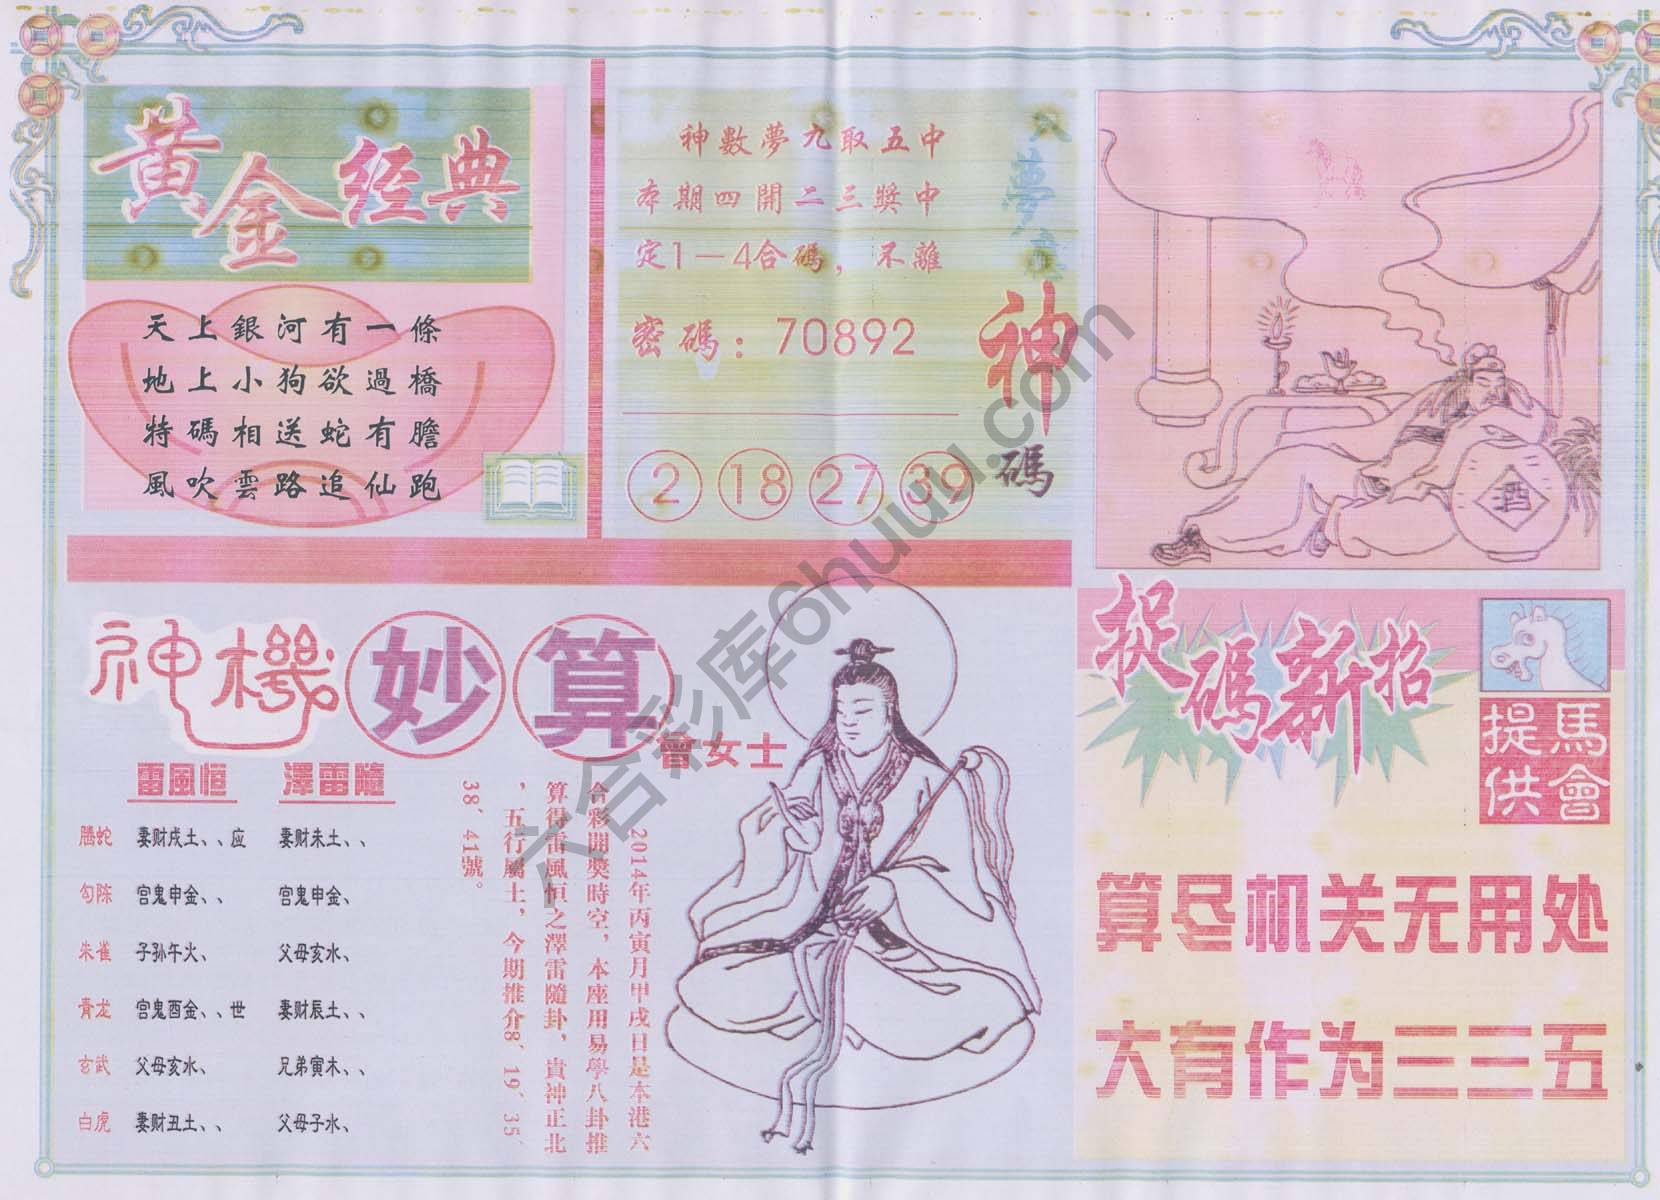 黄金经典
天上銀河有一條
地上小狗欲過橋
特碼相送蛇有膽
風吹雲路追仙跑
神數夢九取五中
本期四開二三獎中
定1—4合碼，不離
密碼：70892
2 18 27 39
神
碼
酒
神機妙算
會女士
雷風恒 澤雷隨
腾蛇 妻财戌土、、应 妻财未土、、
勾陈 宫鬼申金、、 宫鬼申金、
朱雀 子孙午火、 父母亥水、
青龙 宫鬼酉金、、世 妻财辰土、、
玄武 父母亥水、 兄弟寅木、、
白虎 妻财丑土、、 父母子水、
2014年丙寅月甲戌日是本港六
合彩開獎時空，本座用易學八卦推
算得雷風恒之澤雷隨卦，貴神正北
，五行屬土，今期推介8、19、35、
38、41號。
捉碼新招
馬會
提供
算尽机关无用处
大有作为三三五
六合彩库6huuu.com